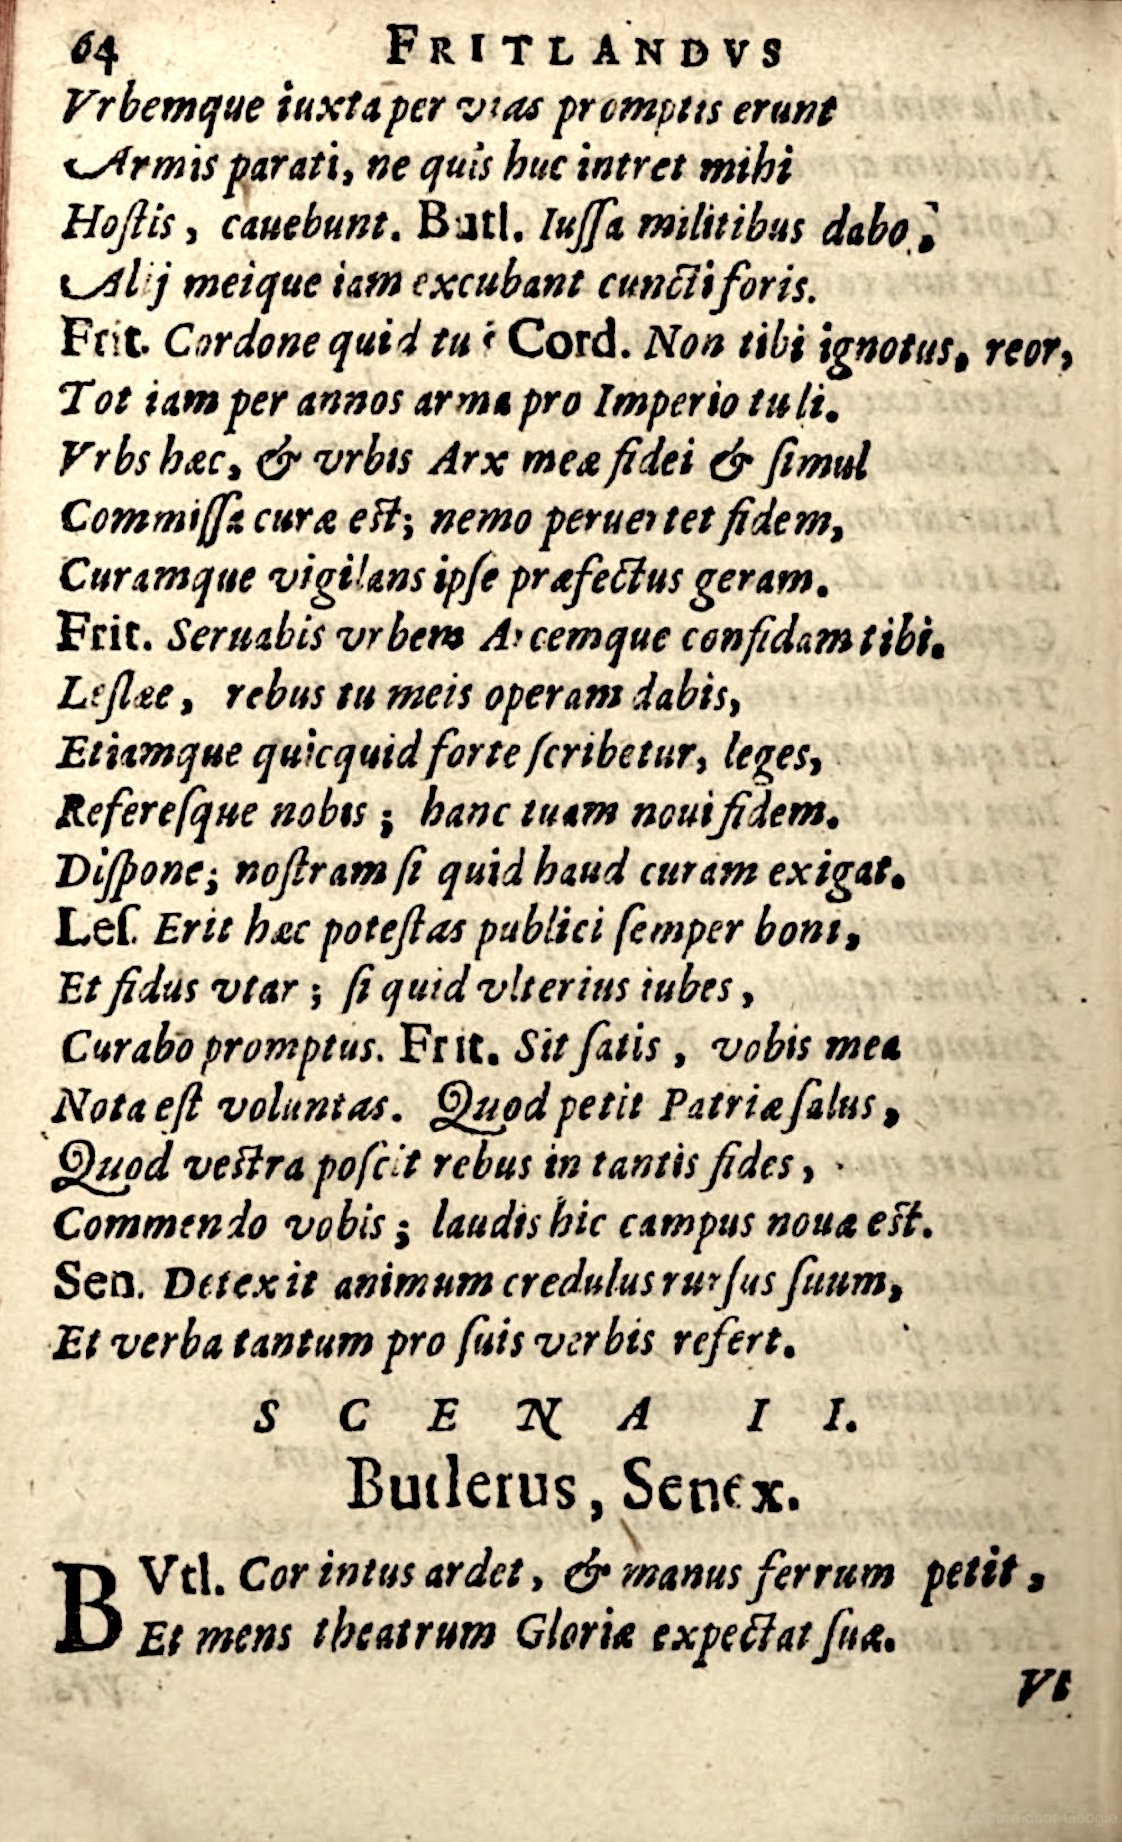 64 FRITLANDVS
Vrbemque iuxta per vias promptis erunt
Armis parati, ne quis huc intret mihi
Hoſtis, cauebunt. Butl. Iuſſa militibus dabo;
Alij meique iam excubant cuncti foris.
Frit. Cordone quid tu? Cord. Non tibi ignotus, reor,
Tot iam per annos arma pro Imperio tuli.
Vrbs hæc, & vrbis Arx meæ fidei & ſimul
Commiſſa curæ eſt; nemo peruertet fidem,
Curamque vigilans ipſe præfectus geram.
Frit. Seruabis vrbem Arcemque confidam tibi.
Leſlæe, rebus tu meis operam dabis,
Etiamque quicquid forte ſcribetur, leges,
Refereſque nobis; hanc tuam noui fidem.
Diſpone; noſtram ſi quid haud curam exigat.
Leſ. Erit hæc poteſtas publici ſemper boni,
Et fidus vtar; ſi quid vlterius iubes,
Curabo promptus. Frit. Sit ſatis, vobis mea
Nota eſt voluntas. Quod petit Patriæ ſalus,
Quod veſtra poſcit rebus in tantis fides,
Commendo vobis; laudis hic campus noua eſt.
Sen. Detexit animum credulus rurſus ſuum,
Et verba tantum pro ſuis verbis refert.
SCENA II.
Butlerus, Senex.
BVtl. Cor intus ardet, & manus ferrum petit,
Et mens theatrum Gloriæ expectat ſuæ.
Vt